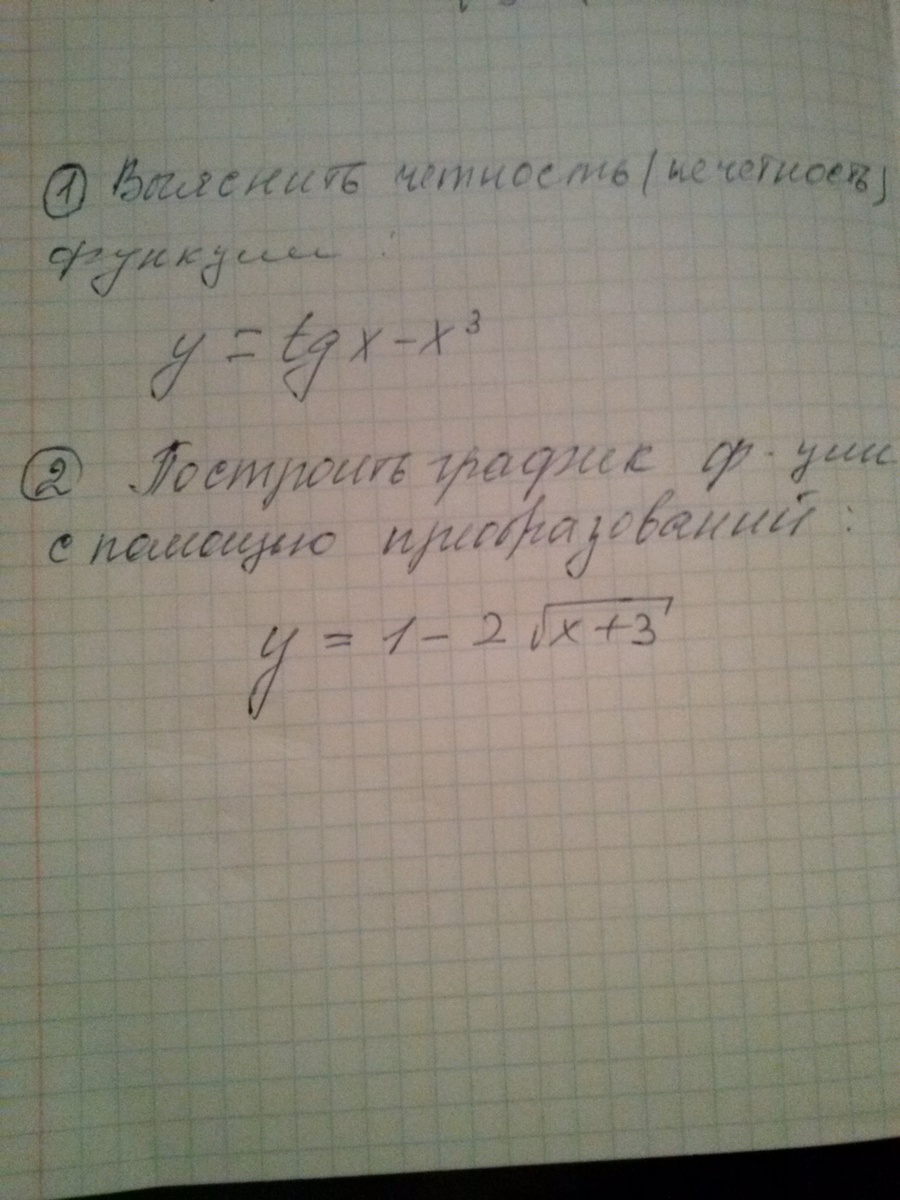 ① Выяснить четность (нечетность)
функции :
y = tg x - x³
② Построить график ф-ции
с помощью преобразований :
y = 1 - 2 √(x+3)